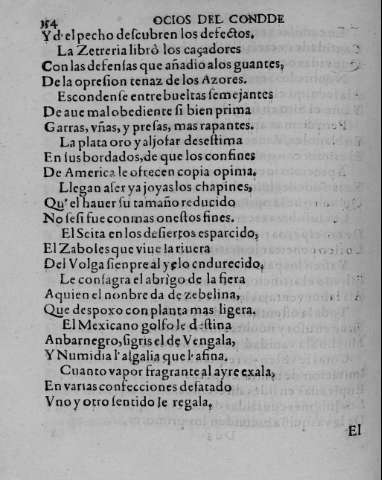 154 OCIOS DEL CONDDE
Y d'el pecho descubren los defectos,
La Zetreria librò los caçadores
Con las defensas que añadio alos guantes,
De la opresion tenaz de los Azores.
Escondense entrebueltas semejantes
De aue mal obediente si bien prima
Garras, vñas, y presas, mas rapantes.
La plata oro y aljofar desestima
En sus bordados, de que los confines
De America le ofrecen copia opima.
Llegan a ser ya joyas los chapines,
Qu' el hauer su tamaño reducido
No se si fue con mas onestos fines.
El Scita en los desiertos esparcido,
El Zaboles que viue la riuera
Del Volga sienpre al yelo endurecido,
Le consagra el abrigo de la fiera
A quien el nonbre da de zebelina,
Que despoxo con planta mas ligera.
El Mexicano golfo le destina
Anbarnegro, sigris el de Vengala,
Y Numidia l'algalia que l'afina.
Cuanto vapor fragrante al ayre exala,
En varias confecciones desatado
Vno y otro sentido le regala,
El